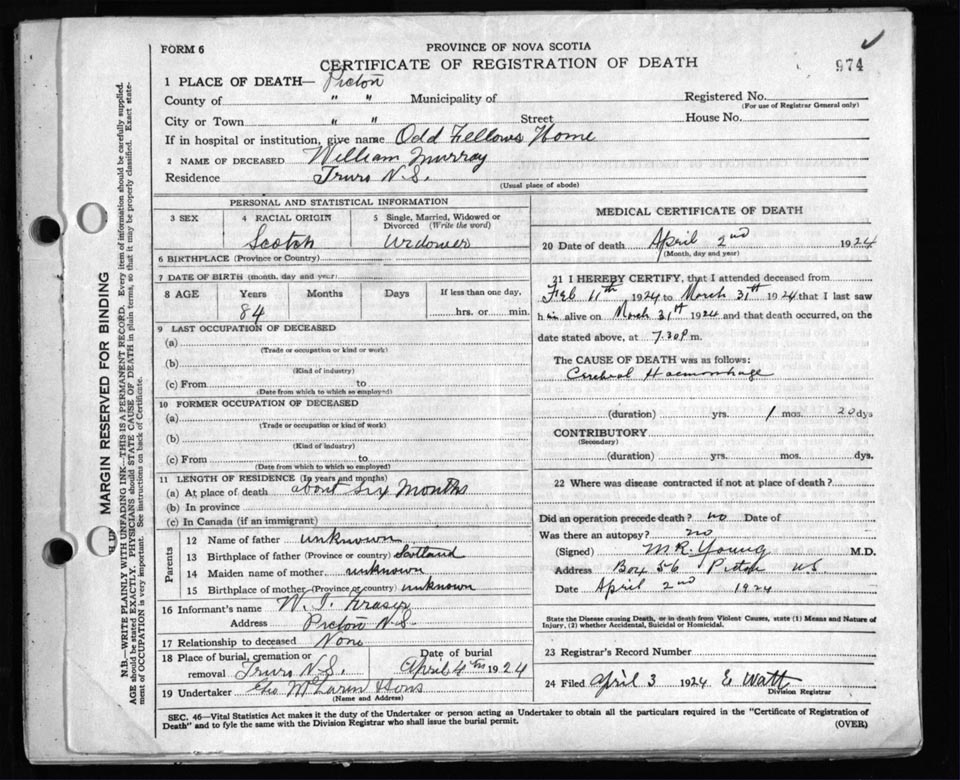 FORM 6
PROVINCE OF NOVA SCOTIA
CERTIFICATE OF REGISTRATION OF DEATH
974
1 PLACE OF DEATH— Pictou
County of " " Municipality of Registered No.
(For use of Registrar General only)
City or Town " " Street House No.
If in hospital or institution, give name Odd Fellows Home
2 NAME OF DECEASED William Murray
Residence Truro N.S.
(Usual place of abode)
PERSONAL AND STATISTICAL INFORMATION
3 SEX 4 RACIAL ORIGIN 5 Single, Married, Widowed or Divorced (Write the word)
Scotch Widower
6 BIRTHPLACE (Province or Country)
7 DATE OF BIRTH (month, day and year)
8 AGE Years Months Days If less than one day,
84 hrs. or min.
9 LAST OCCUPATION OF DECEASED
(a)
(Trade or occupation or kind or work)
(b)
(Kind of industry)
(c) From to
(Date from which to which so employed)
10 FORMER OCCUPATION OF DECEASED
(a)
(Trade or occupation or kind of work)
(b)
(Kind of industry)
(c) From to
(Date from which to which so employed)
11 LENGTH OF RESIDENCE (In years and months)
(a) At place of death about Six Months
(b) In province
(c) In Canada (if an immigrant)
Parents
12 Name of father unknown
13 Birthplace of father (Province or country) Scotland
14 Maiden name of mother unknown
15 Birthplace of mother (Province or country) unknown
16 Informant's name W. J. Fraser
Address Pictou N.S.
17 Relationship to deceased None
18 Place of burial, cremation or removal Truro N.S. Date of burial April 4th 1924
19 Undertaker Geo McLaren Sons
(Name and Address)
MEDICAL CERTIFICATE OF DEATH
20 Date of death April 2nd 1924
(Month, day and year)
21 I HEREBY CERTIFY, that I attended deceased from
Feb 11th 1924 to March 31st 1924 that I last saw
him alive on March 31st 1924 and that death occurred, on the
date stated above, at 7.30 P m.
The CAUSE OF DEATH was as follows:
Cerebral Haemorrhage
(duration) yrs. 1 mos. 20 dys
CONTRIBUTORY
(Secondary)
(duration) yrs. mos. dys.
22 Where was disease contracted if not at place of death?
Did an operation precede death? no Date of
Was there an autopsy? no
(Signed) M.R. Young M.D.
Address Box 56 Pictou NS
Date April 2nd 1924
State the Disease causing Death, or in death from Violent Causes, state (1) Means and Nature of
Injury, (2) whether Accidental, Suicidal or Homicidal.
23 Registrar's Record Number
24 Filed April 3 1924 E Watt
Division Registrar
SEC. 46—Vital Statistics Act makes it the duty of the Undertaker or person acting as Undertaker to obtain all the particulars required in the "Certificate of Registration of
Death" and to fyle the same with the Division Registrar who shall issue the burial permit.
(OVER)
MARGIN RESERVED FOR BINDING
N.B.—WRITE PLAINLY WITH UNFADING INK—THIS IS A PERMANENT RECORD. Every item of information should be carefully supplied.
AGE should be stated EXACTLY. PHYSICIANS should STATE CAUSE OF DEATH in plain terms, so that it may be properly classified. Exact state-
ment of OCCUPATION is very important. See instructions on back of Certificate.